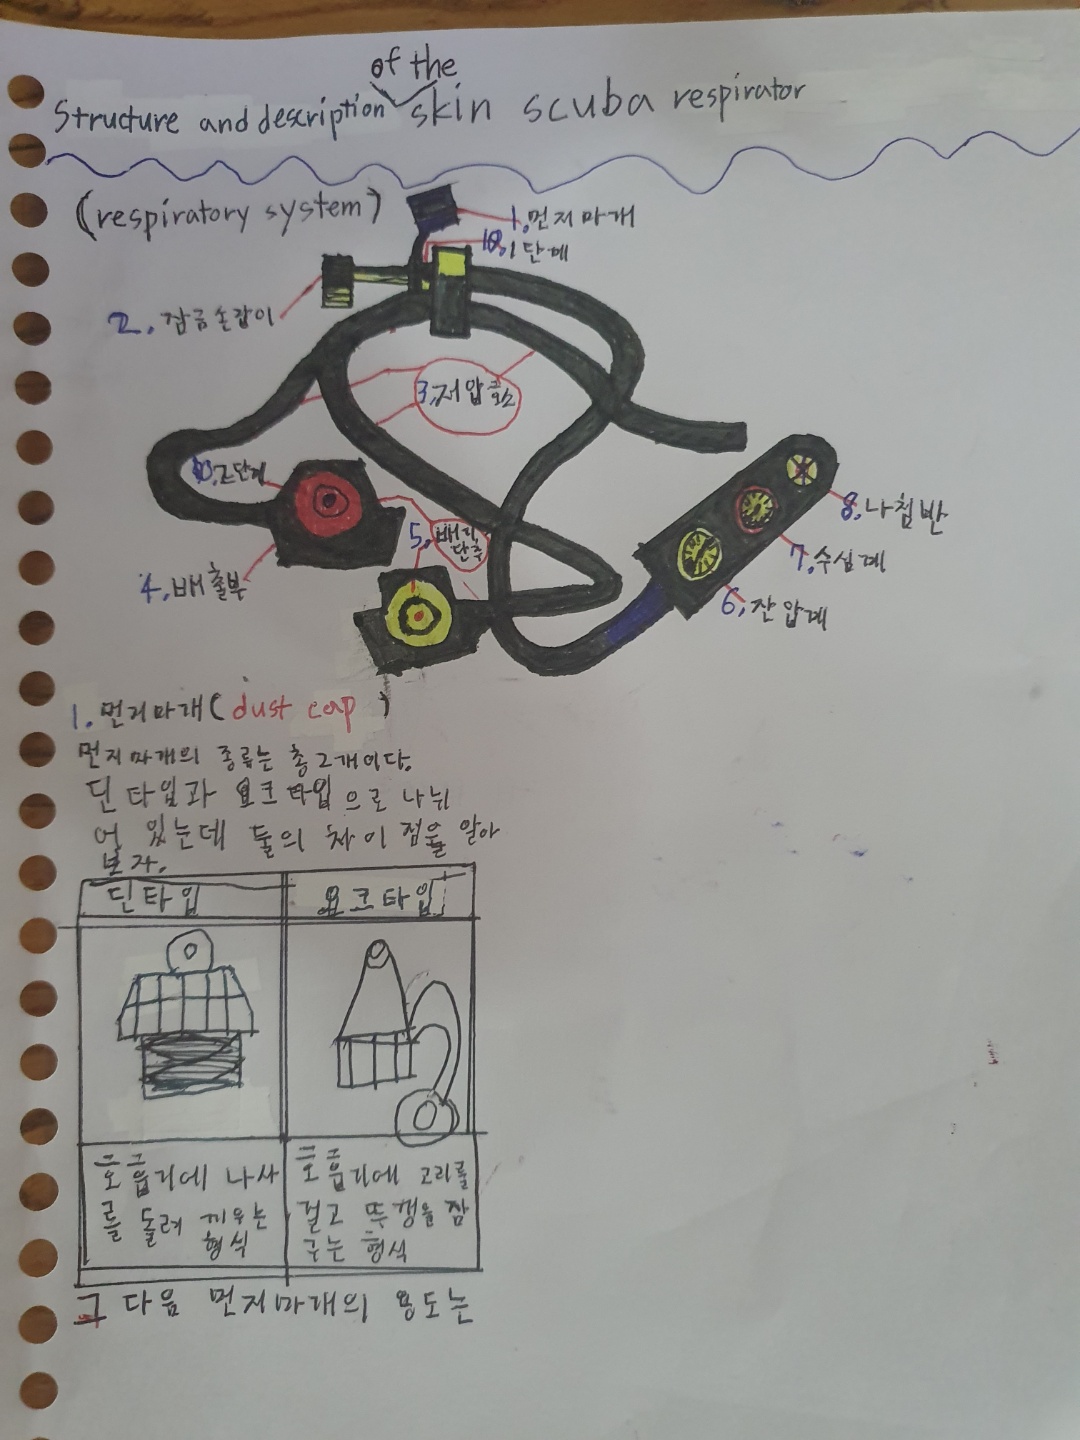 of the
Structure and description skin scuba respirator
(respiratory system)
1. 먼지마개
10. 1단계
2. 잠금손잡이
3. 저압호스
2단계
5. 배지
단추
4. 배출부
8. 나침반
7. 수심계
6. 잔압계
1. 먼지마개(dust cap)
먼지마개의 종류는 총 2개이다.
딘타입과 요크타입으로 나뉘
어 있는데 둘의 차이점을 알아
보자.
딘타입
요크타입
호흡기에 나사
를 돌려 끼우는
형식
호흡기에 고리를
걸고 뚜껑을 잠
구는 형식
그 다음 먼지마개의 용도는